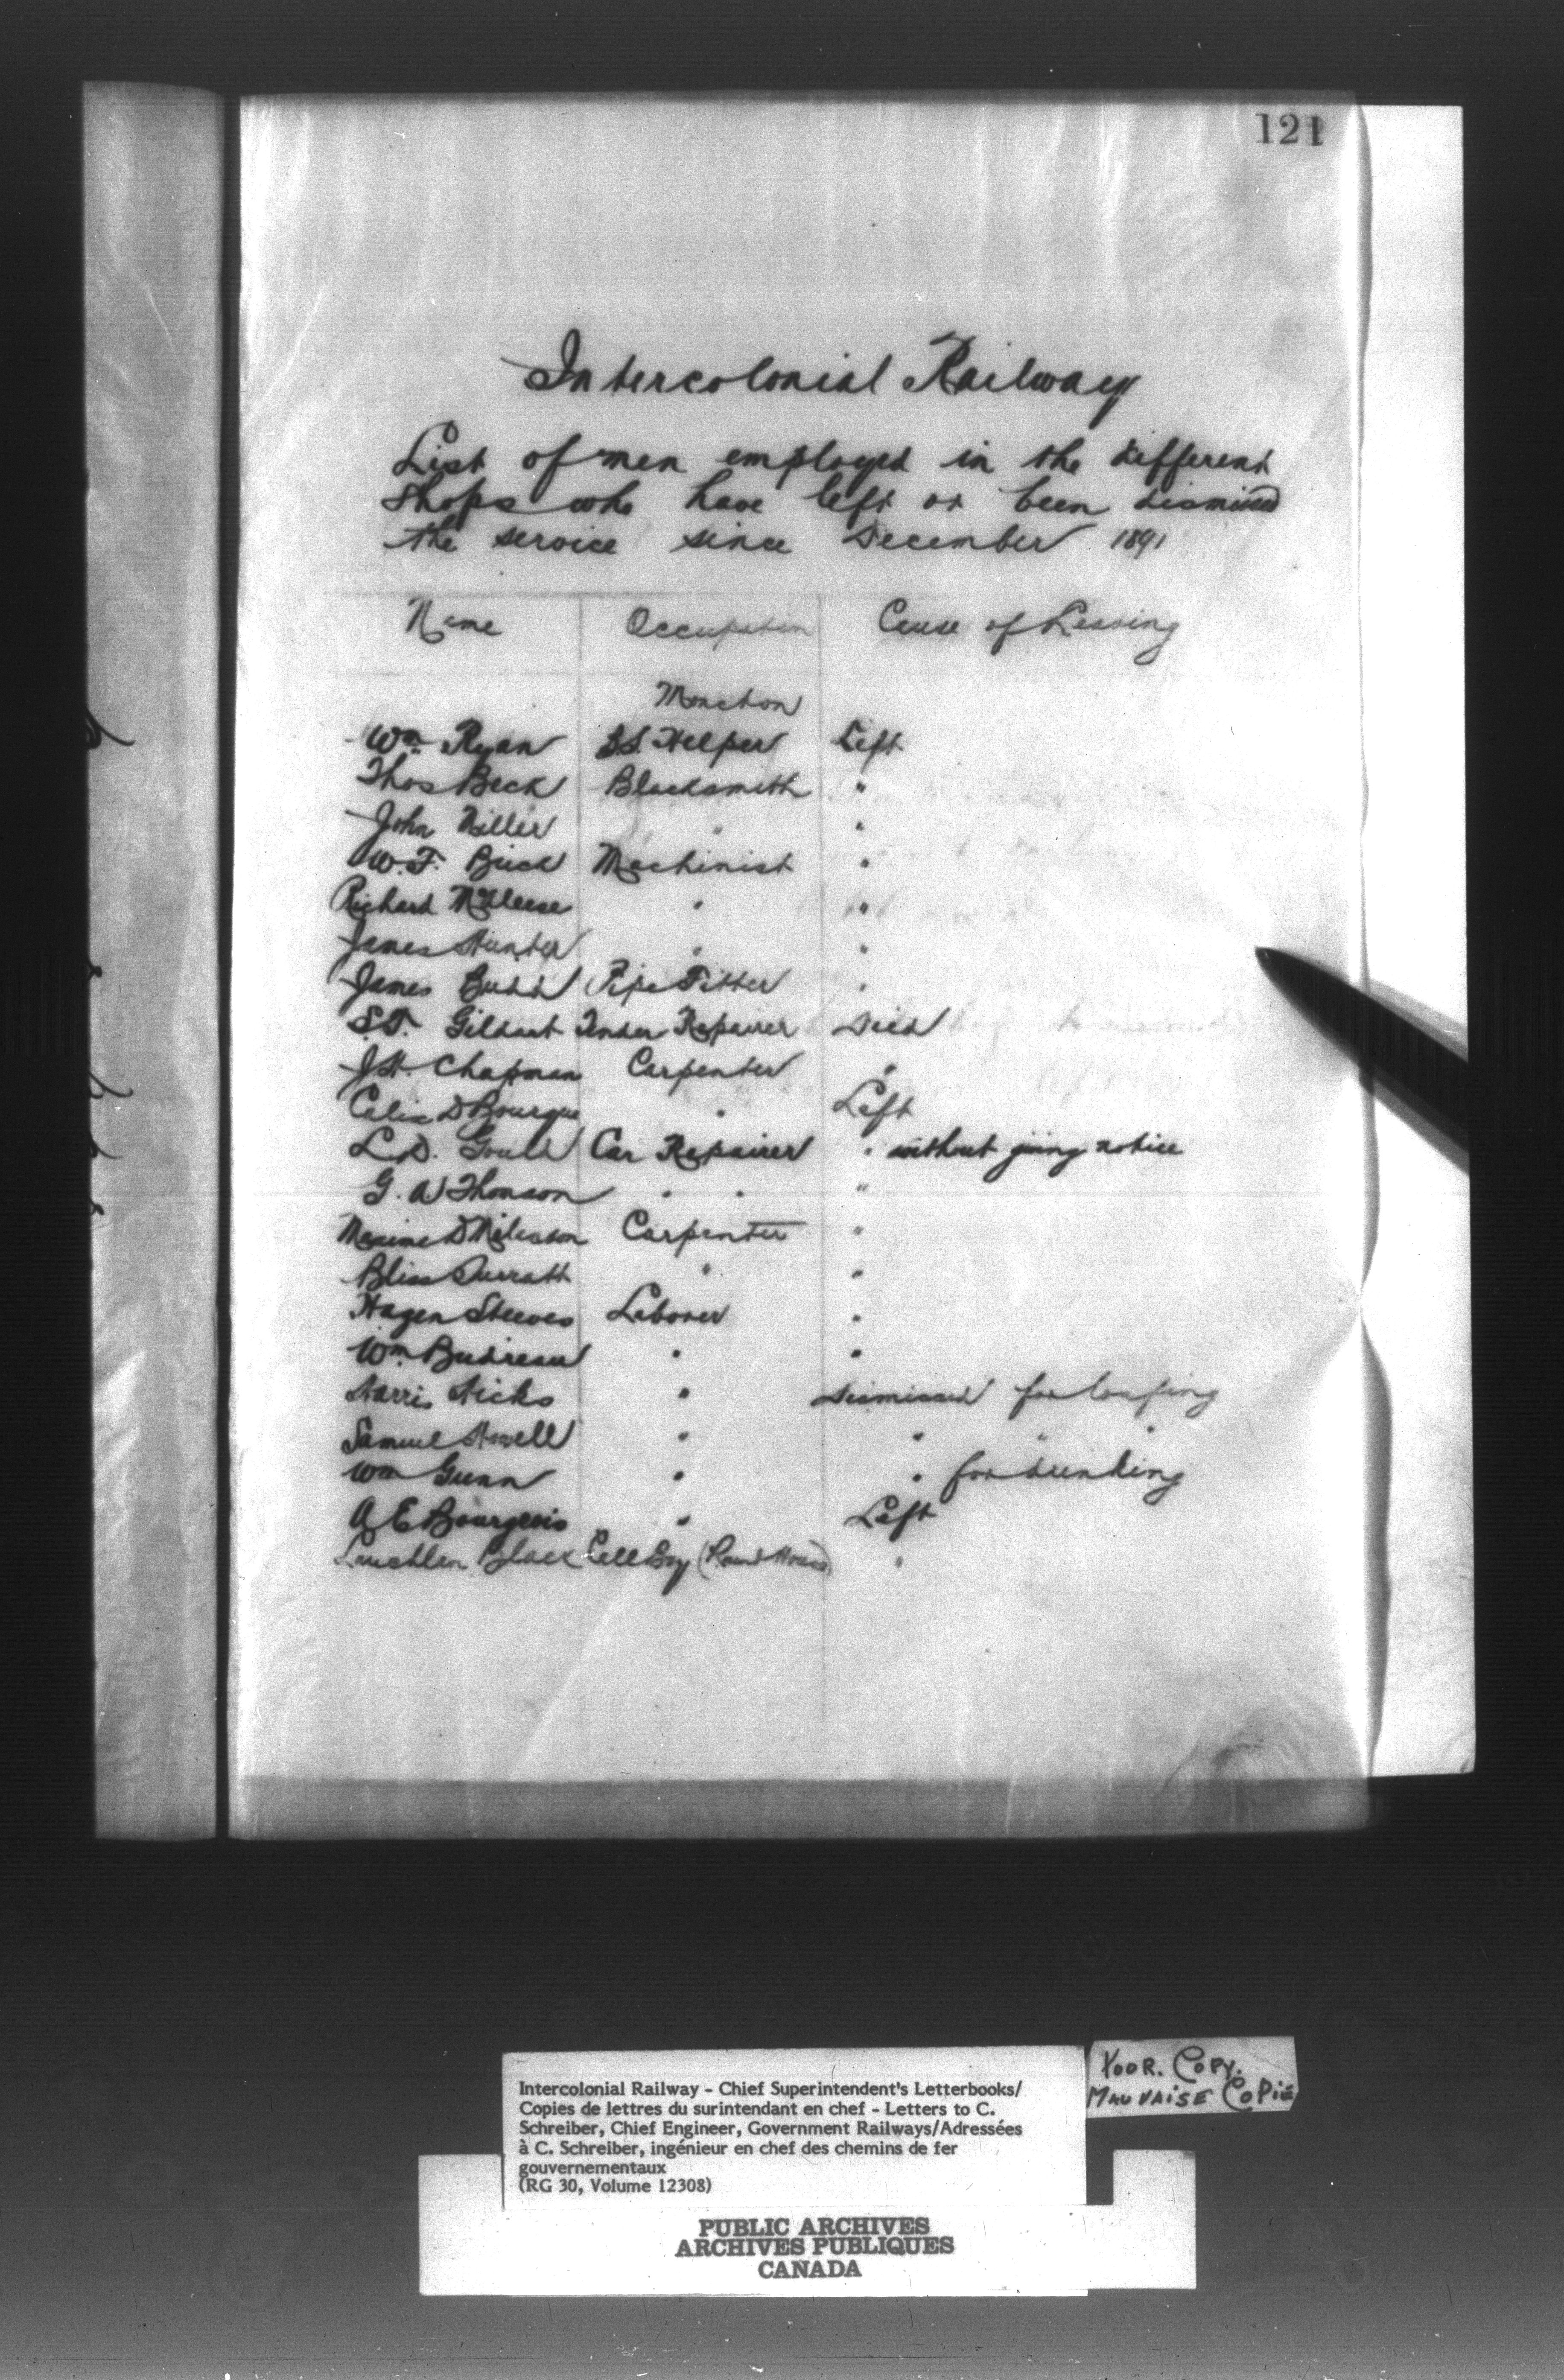 121
Intercolonial Railway
List of men employed in the different
Shops who have left or been dismissed
the service since December 1891
Name Occupation Cause of Leaving
Moncton
Wm. Ryan B.S. Helper Left
Thos Beck Blacksmith "
John Miller " "
W. F. Buck Machinist "
Richard "  "
James Hunter " "
James Budd Pipe Fitter "
S.T. Gildart Tender Repairer Died
J.H. Chapman Carpenter "
Calix D Bourque " Left
L.D. Gould Car Repairer " without giving notice
G. A Thomson " " "
Maxime D Carpenter "
Bliss " "
Hazen Steeves Laborer "
Wm. Budreau " "
Harris Hicks " Dismissed for loafing
Samuel " " " "
Wm Gunn " " for drinking
A E Bourgeois " Left
Lauchlan Black Call Boy (Round House) "
Intercolonial Railway - Chief Superintendent's Letterbooks/
Copies de lettres du surintendant en chef - Letters to C.
Schreiber, Chief Engineer, Government Railways/Adressées
à C. Schreiber, ingénieur en chef des chemins de fer
gouvernementaux
(RG 30, Volume 12308)
POOR. COPY.
MAUVAISE COPIE
PUBLIC ARCHIVES
ARCHIVES PUBLIQUES
CANADA